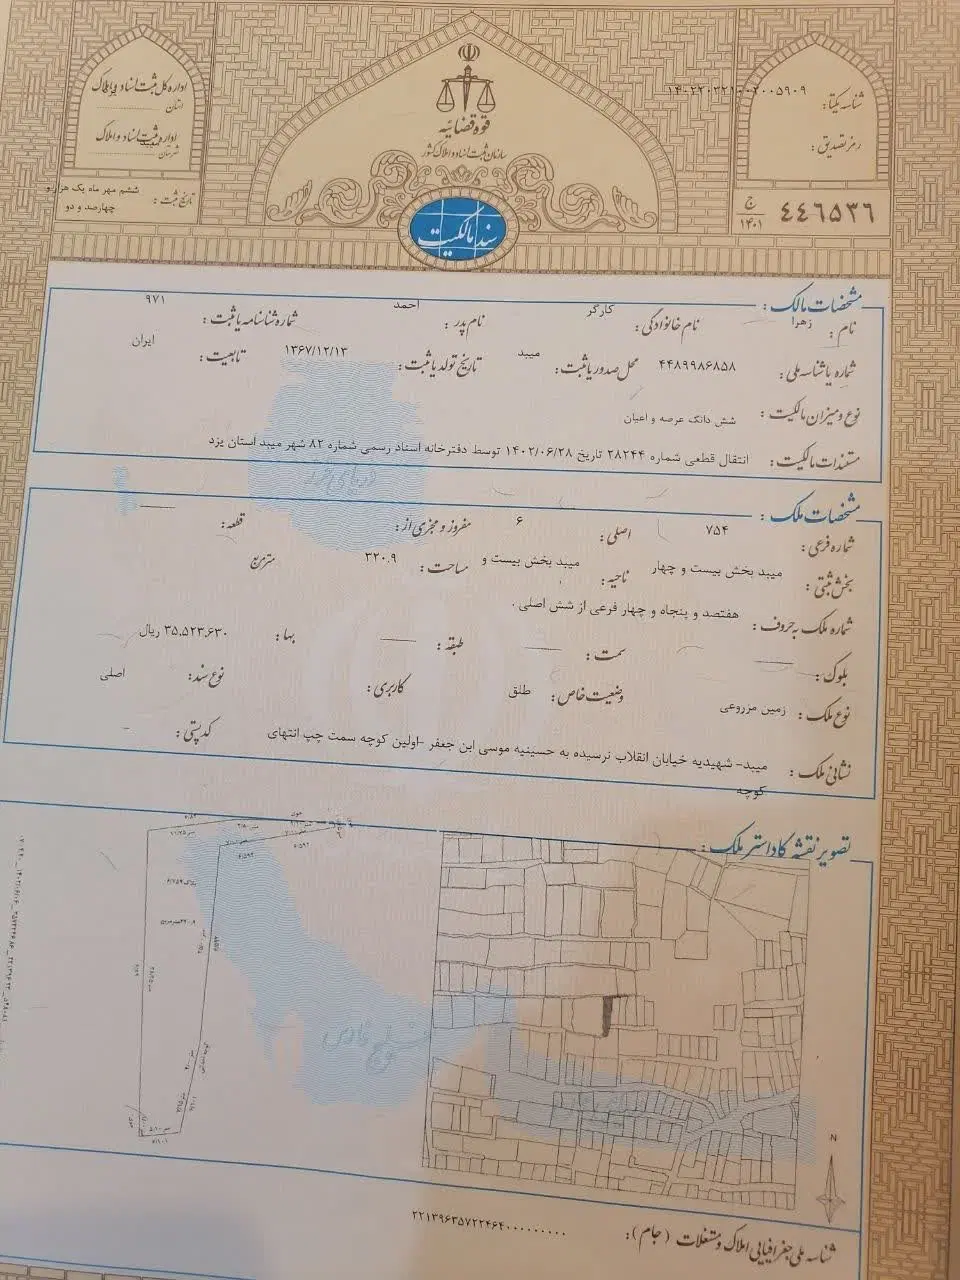 اداره کل ثبت اسناد و املاک
استان
اداره ثبت اسناد و املاک
شهرستان میبد
تاریخ ثبت: ششم مهر ماه یک هزار و
چهارصد و دو
قوه قضائیه
سازمان ثبت اسناد و املاک کشور
سند مالکیت
شناسه یکتا: ۱۴۰۲۲۰۲۲۱۰۰۲۰۰۵۹۰۹
رمز تصدیق:
۴۴۶۵۳۶ ج ۱۴۰۱
مشخصات مالک:
نام: زهرا نام خانوادگی: کارگر نام پدر: احمد شماره شناسنامه یا ثبت: ۹۷۱
شماره یا شناسه ملی: ۴۴۸۹۹۸۶۸۵۸ محل صدور یا ثبت: میبد تاریخ تولد یا ثبت: ۱۳۶۷/۱۲/۱۳ تابعیت: ایران
نوع و میزان مالکیت: شش دانگ عرصه و اعیان
مستندات مالکیت: انتقال قطعی شماره ۲۸۲۴۴ تاریخ ۱۴۰۲/۰۶/۲۸ توسط دفترخانه اسناد رسمی شماره ۸۲ شهر میبد استان یزد
مشخصات ملک:
شماره فرعی: ۷۵۴ اصلی: ۶ مفروز و مجزی از: قطعه:
بخش ثبتی: میبد بخش بیست و چهار ناحیه: میبد بخش بیست و مساحت: ۳۲۰.۹ مترمربع
شماره ملک به حروف: هفتصد و پنجاه و چهار فرعی از شش اصلی .
بلوک: سمت: طبقه: بها: ۳۵,۵۲۳,۶۳۰ ریال
نوع ملک: زمین مزروعی وضعیت خاص: طلق کاربری: نوع سند: اصلی
نشانی ملک: میبد- شهیدیه خیابان انقلاب نرسیده به حسینیه موسی ابن جعفر -اولین کوچه سمت چپ انتهای کد پستی: -
کوچه
تصویر نقشه کاداستر ملک:
دریای خزر
خلیج فارس
N
شناسه ملی جغرافیایی املاک و مستغلات (جام): ۲۲۱۳۹۶۳۵۷۲۲۴۶۴۰۰۰۰۰۰۰۰۰۰